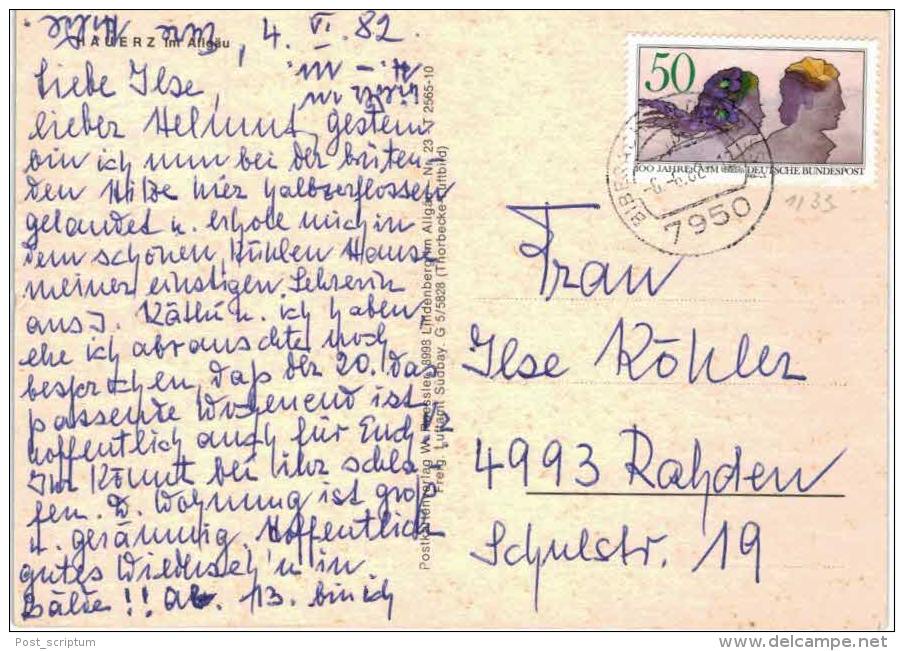 HAUERZ im Allgäu, 4. VI. 82
Liebe Ilse,
lieber Helmut, gestern
bin ich nun bei der
den Hilde hier halbzerflossen
gelandet u. erhole mich in
dem schönen, kühlen Hause
meiner einstigen Lehrerin
aus J. Käthi u. ich haben
ehe ich abrauschte noch
besprochen, daß der 20. das
passende Wochenend ist,
hoffentlich auch für Euch?
Ihr könnt bei ihr schla-
fen. D. Wohnung ist groß
u. geräumig. Hoffentlich
gutes Wiederseh'n in
Bälde!! Ab. 13. bin ich
Postkartenverlag W. Roessler, 8998 Lindenberg im Allgäu Nr. 23 JT 2565-10
Freig. Luftamt Südbay. G 5/5828 (Thorbecke-Luftbild)
50
100 JAHRE CVJM DEUTSCHE BUNDESPOST
7950
1135
Frau
Ilse Köhler
4993 Rahden
Schulstr. 19
Post_scriptum
www.delcampe.net